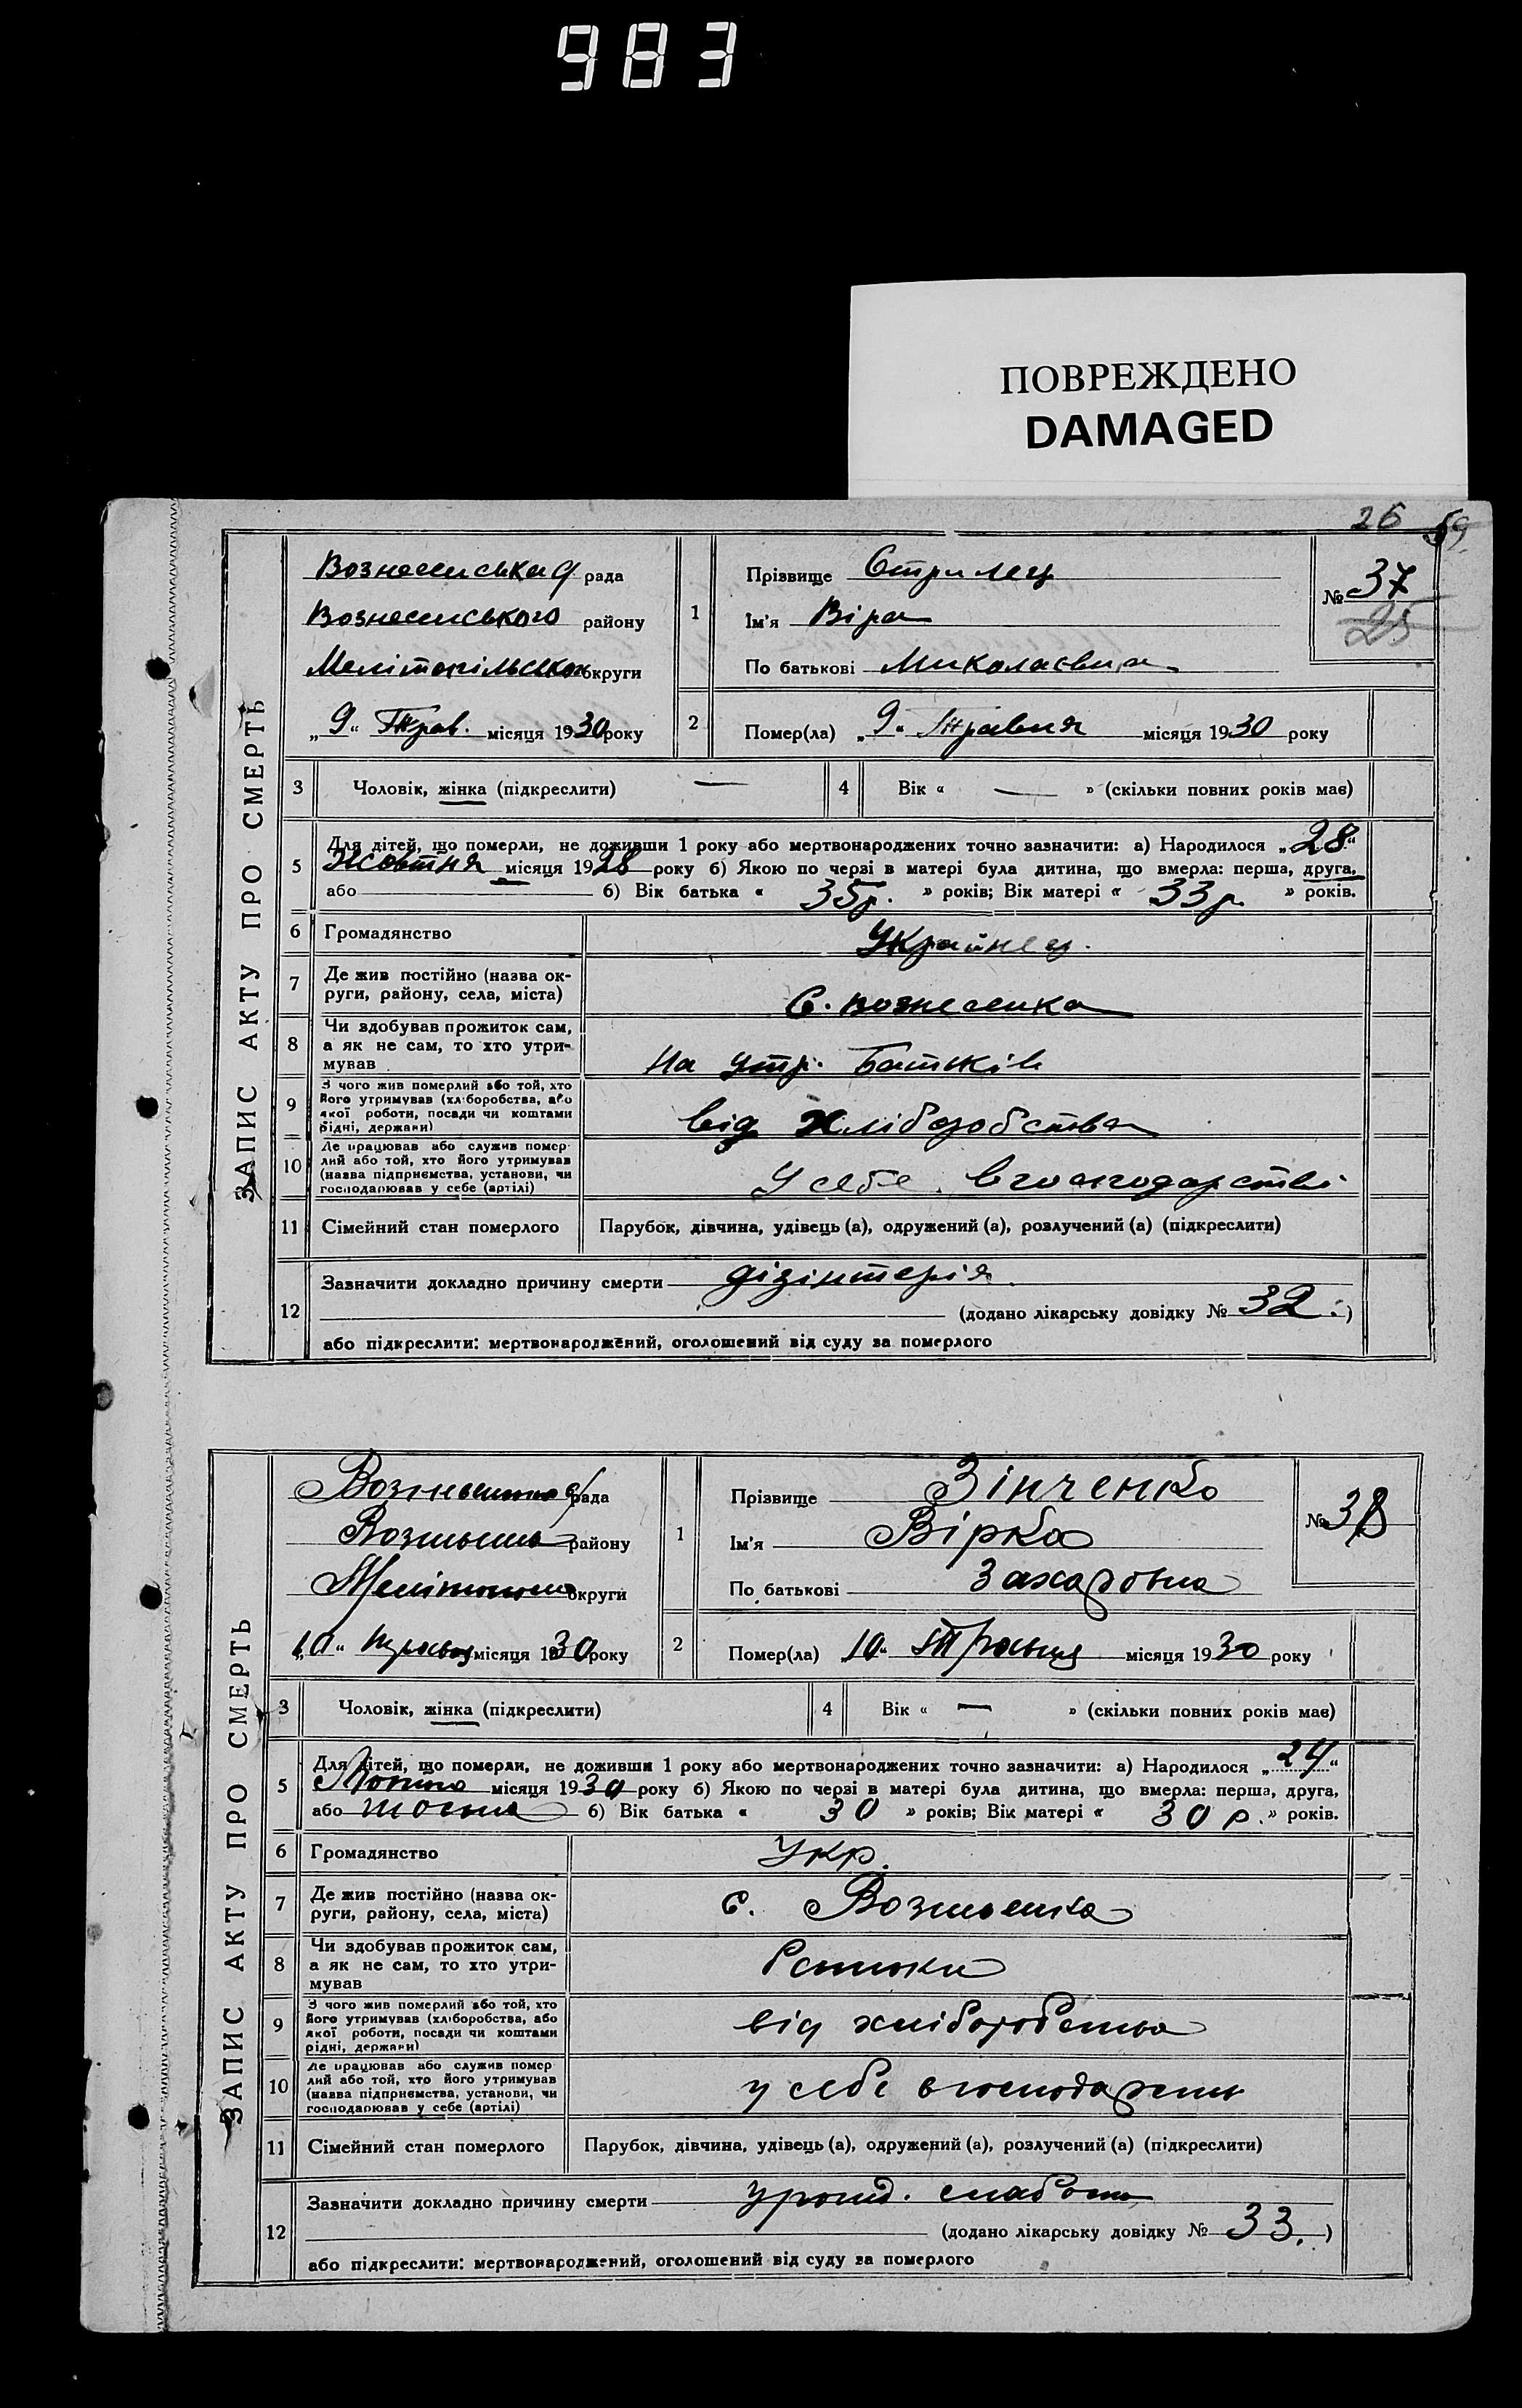 983
ПОВРЕЖДЕНО
DAMAGED
26 59
ЗАПИС АКТУ ПРО СМЕРТЬ
Вознесенська рада
Вознесенського району
Мелітопільської округи
„9“ Трав. місяця 1930 року
1 Прізвище Стрилец
Ім'я Віра
По батькові Миколаєвна
№ 37
25
2 Помер(ла) „9“ Травня місяця 1930 року
3 Чоловік, жінка (підкреслити) —
4 Вік « — » (скільки повних років має)
5 Для дітей, що померли, не доживши 1 року або мертвонароджених точно зазначити: а) Народилося „28“
Жовтня місяця 1928 року б) Якою по черзі в матері була дитина, що вмерла: перша, друга,
або б) Вік батька « 35 р. » років; Вік матері « 33 р. » років.
6 Громадянство Украйнец.
7 Де жив постійно (назва ок-
руги, району, села, міста) С. Вознесенка
8 Чи здобував прожиток сам,
а як не сам, то хто утри-
мував На утр. Батьків
9 З чого жив померлий або той, хто
його утримував (хліборобства, або
якої роботи, посади чи коштами
рідні, держави) від хліборобства
10 Де працював або служив помер-
лий або той, хто його утримував
(назва підприємства, установи, чи
господарював у себе (артілі) У себе в господарстві
11 Сімейний стан померлого Парубок, дівчина, удівець (а), одружений (а), розлучений (а) (підкреслити)
12 Зазначити докладно причину смерти дізінтерія
(додано лікарську довідку № 32.)
або підкреслити: мертвонароджений, оголошений від суду за померлого
ЗАПИС АКТУ ПРО СМЕРТЬ
рада
району
округи
„10“ Травня місяця 1930 року
1 Прізвище Зінченко
Ім'я Вірка
По батькові Захаровна
№ 38
2 Помер(ла) „10“ Травня місяця 1930 року
3 Чоловік, жінка (підкреслити)
4 Вік « — » (скільки повних років має)
5 Для дітей, що померли, не доживши 1 року або мертвонароджених точно зазначити: а) Народилося
місяця 1930 року б) Якою по черзі в матері була дитина, що вмерла: перша, друга,
або б) Вік батька « 30 » років; Вік матері « 30 р. » років.
6 Громадянство Укр.
7 Де жив постійно (назва ок-
руги, району, села, міста) с. Вознесенка
8 Чи здобував прожиток сам,
а як не сам, то хто утри-
мував Батьки
9 З чого жив померлий або той, хто
його утримував (хліборобства, або
якої роботи, посади чи коштами
рідні, держави) від хліборобства
10 Де працював або служив помер-
лий або той, хто його утримував
(назва підприємства, установи, чи
господарював у себе (артілі) у себе в господарстві
11 Сімейний стан померлого Парубок, дівчина, удівець (а), одружений (а), розлучений (а) (підкреслити)
12 Зазначити докладно причину смерти урожд. слабость
(додано лікарську довідку № 33.)
або підкреслити: мертвонароджений, оголошений від суду за померлого